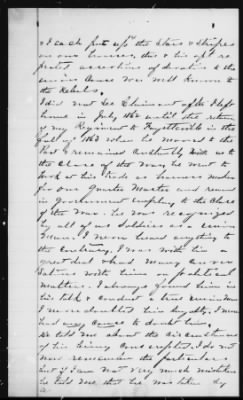 & I each put up the Stars & Stripes
on our houses, this & his oft re
peated assertion of devotion to the
union Cause was well known to
the Rebels.
I did not see Claimant after I left
home in July 1862 until the return
of my Regiment to Fayetteville in the
fall of 1863 when he moved to the
Post & remained constantly with us to
the close of the War, he went to
work at his trade as harness maker
for our Quarter Master and remained
in government employ to the close
of the War. he was recognized
by all of us Soldiers as a Union
man. I never heard anything to
the contrary, I was with him a
great deal & had many conver
sations with him on political
matters. I always found him in
his talk & conduct a true union man
I never doubted his loyalty, I never
had any cause to doubt him,
He told me about the circumstances
of his being conscripted. I do not
now remember the particulars
but if I am not very much mistaken
he told me that he was taken by